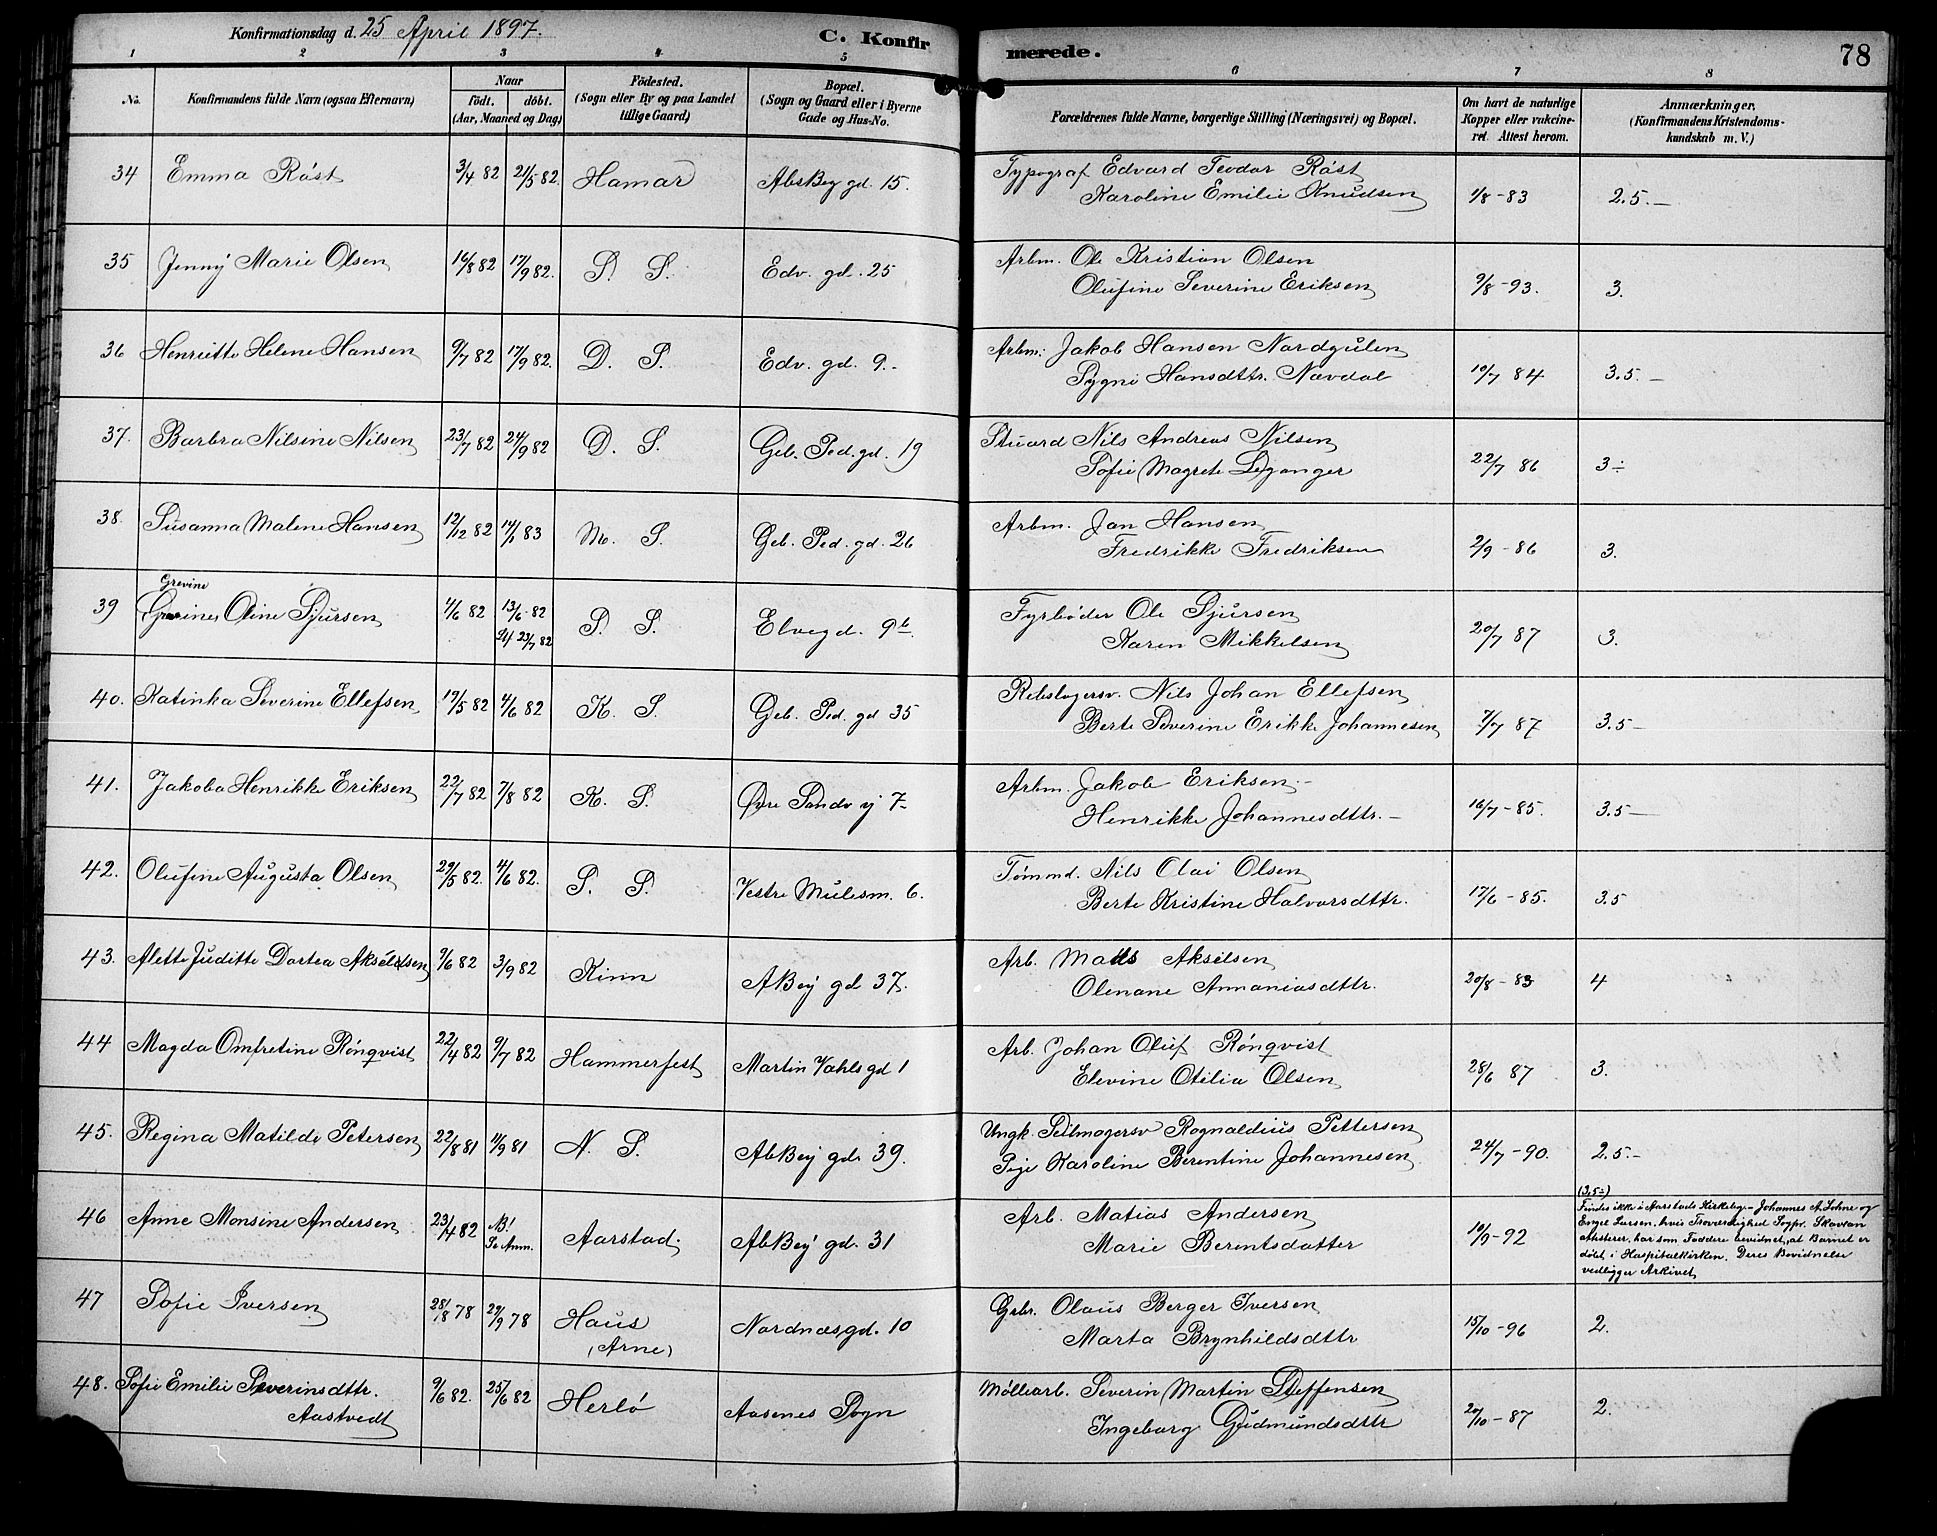 Konfirmationsdag d. 25 April 1897.
C. Konfirmerede.
78
1 2 3 4 5 6 7 8
No.
Konfirmandens fulde Navn (ogsaa Efternavn)
Naar
födt. döbt.
(Aar, Maaned og Dag)
Födested.
(Sogn eller By og paa Landet
tillige Gaard)
Bopæl.
(Sogn og Gaard eller i Byerne
Gade og Hus-No.
Forældrenes fulde Navne, borgerlige Stilling (Næringsvei) og Bopæl.
Om havt de naturlige
Kopper eller vakcine-
ret. Attest herom.
Anmærkninger,
(Konfirmandens Kristendoms-
kundskab m. V.)
34 Emma Röst 3/4 82 21/5 82 Hamar AbsBey gd. 15. Typograf Edvard Teodor Röst 1/8-83 2.5.-
Karoline Emilie Knudsen
35 Jenny Marie Olsen 16/8 82 17/9 82. S. S. Edv. gd. 25 Arbm. Ole Kristian Olsen 9/8-93. 3.
Olufine Severine Eriksen
36 Henriette Helene Hansen 9/7 82 17/9 82. D. S. Edv. gd. 9.- Arbm: Jakob Hansen Nordgulen 10/7 84 3.5.-
Sygni Hansdttr. Navdal
37. Barbra Nilsine Nilsen 23/7 82 24/9 82 D. S. Geb. Ped. gd. 19 Stuard Nils Andreas Nilsen 22/7 86 3÷
Sofie Magrete Leganger
38. Susanna Malene Hansen 12/12 82 14/1 83 M. S. Geb. Ped. gd. 26 Arbm. Jan Hansen 2/9-86 3.
Fredrikke Fredriksen
Grevine
39 Oline Sjursen 4/6 82 13/6-82 S. S. Elvegd. 9b Fyrböder Ole Sjursen 20/7 87 3.
Stf 23/7 82
Karen Mikkelsen
40. Katinka Severine Ellefsen 17/5 82 4/6 82 K. S. Geb. Ped. gd 35 Rebslagersv. Nils Johan Ellefsen 7/7 87 3.5-
Berte Severine Erikke Johannesen
41. Jakoba Henrikke Eriksen 22/7 82 7/8 82 K. S. Øvre Sandv. 7- Arbm. Jakob Eriksen.- 16/7-85. 3.5-
Henrikke Johannesdttr.-
42. Olufine Augusta Olsen 29/5 82. 4/6 82. S. S. Vestre Mulesm. 6. Tømmd. Nils Olai Olsen 17/6-85. 3.5
Berte Kristine Halvorsdttr.
43. Alette Juditte Dortea Akselsen 9/6 82 3/9 82 Kinn ABey gd 37. Arb. Mads Akselsen 20/8-83 4
Olenane Annaniasdttr.
44 Magda Omfretine Rönqvist 22/4 82 9/7 82 Hammerfest Martin Vahls gd 1 Arb. Johan Oluf Rönqvist 28/6 87 3.
Elevine Otilia Olsen
45. Regina Matilde Petersen 22/8 81 11/9 81 N. S. AbBey gd. 39. Ungk. Seilmagersv Rognaldius Pettersen 24/7-90. 2.5.-
Pige Karoline Berentine Johannesen
46 Anne Monsine Andersen 23/4 82 NB! Se Anm. Aarstad. AbBey gd. 31 Arb. Matias Andersen 10/9-92
Marie Berentsdatter
(3.5÷)
Findes ikke i Aarstads Kirkebog. Johannes A. Sohne og
Engel Larsen, hvis Troværdighed Sogpr. Skavlan
attesterer, har som Faddere bevidnet, at Barnet er
döbt i Hospitalkirken. Deres Bevidnelse
vedligger Arkivet
47 Sofie Iversen 28/8 78 27/9 78 Haus Nordnæsgd. 10 Grbr. Olaus Berger Iversen 15/10-96 2.
(Arne)
Marta Brynhildsdttr
48. Sofie Emilie Severinsdttr. 9/6 82. 25/6 82 Herlö Aasenes Sogn Møllearb. Severin Martin Steffensen 20/10-87 2.
Aastvedt
Ingeborg Gudmundsdttr